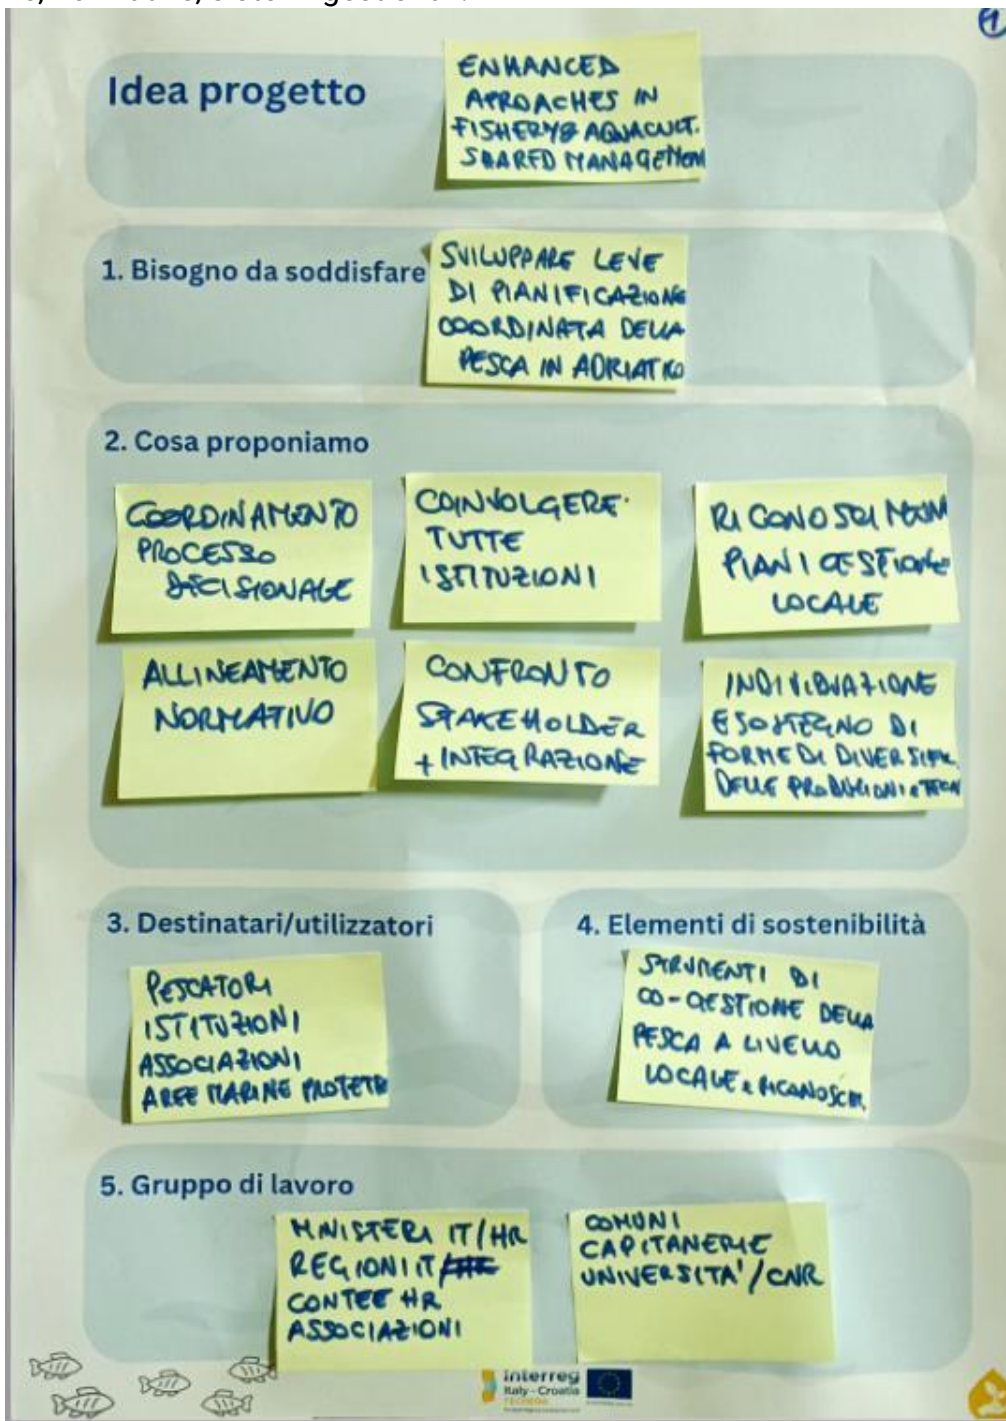 Idea progetto
ENHANCED
APROACHES IN
FISHERY& AQUACULT.
SHARED MANAGEMEN
1. Bisogno da soddisfare
SVILUPPARE LEVE
DI PIANIFICAZIONE
COORDINATA DELLA
PESCA IN ADRIATICO
2. Cosa proponiamo
COORDINAMENTO
PROCESSO
DECISIONALE
COINVOLGERE
TUTTE
ISTITUZIONI
RICONOSCIMENTI
PIANI GESTIONE
LOCALE
ALLINEAMENTO
NORMATIVO
CONFRONTO
STAKEHOLDER
+ INTEGRAZIONE
INDIVIDUAZIONE
E SOSTEGNO DI
FORME DI DIVERSIFIC.
DELLE PRODUZIONI e
3. Destinatari/utilizzatori
PESCATORI
ISTITUZIONI
ASSOCIAZIONI
AREE MARINE PROTETTE
4. Elementi di sostenibilità
STRUMENTI DI
CO-GESTIONE DELLA
PESCA A LIVELLO
LOCALE e RICONOSCIM.
5. Gruppo di lavoro
MINISTERI IT/HR
REGIONI IT/HR
CONTEE HR
ASSOCIAZIONI
COMUNI
CAPITANERIE
UNIVERSITA'/CNR
Interreg
Italy - Croatia